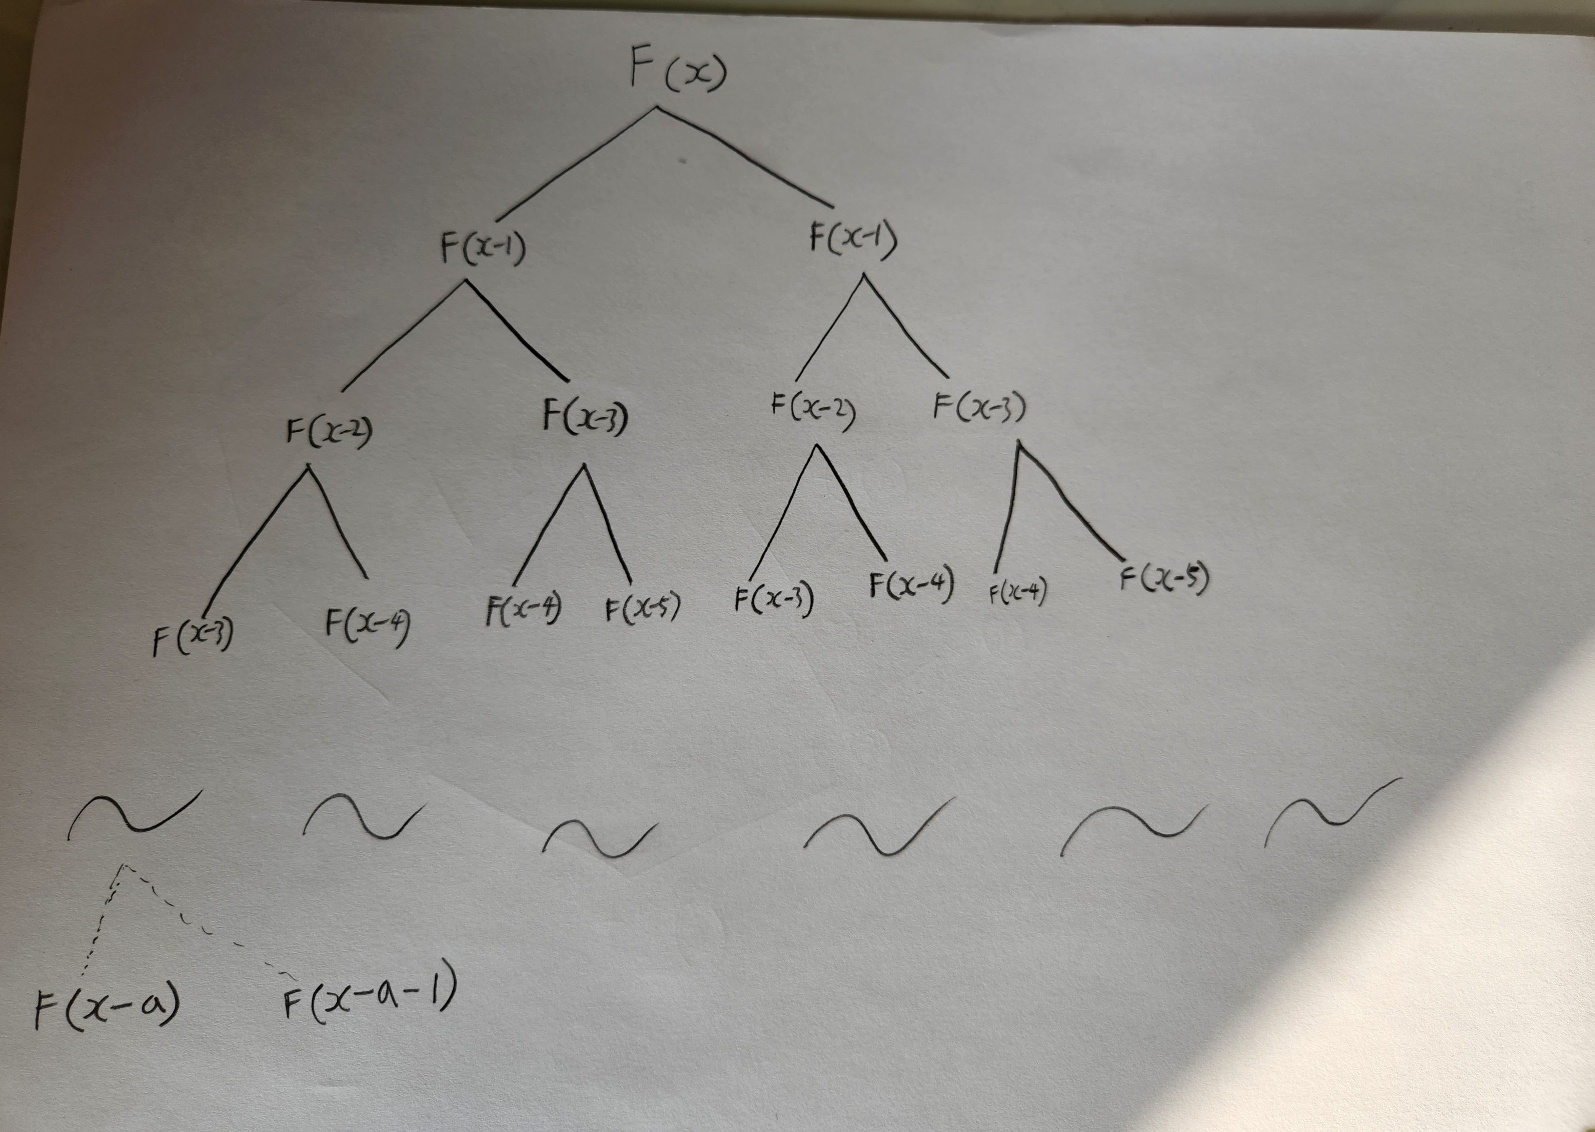 F(x)
F(x-1) F(x-1)
F(x-2) F(x-3) F(x-2) F(x-3)
F(x-3) F(x-4) F(x-4) F(x-5) F(x-3) F(x-4) F(x-4) F(x-5)
F(x-a) F(x-a-1)